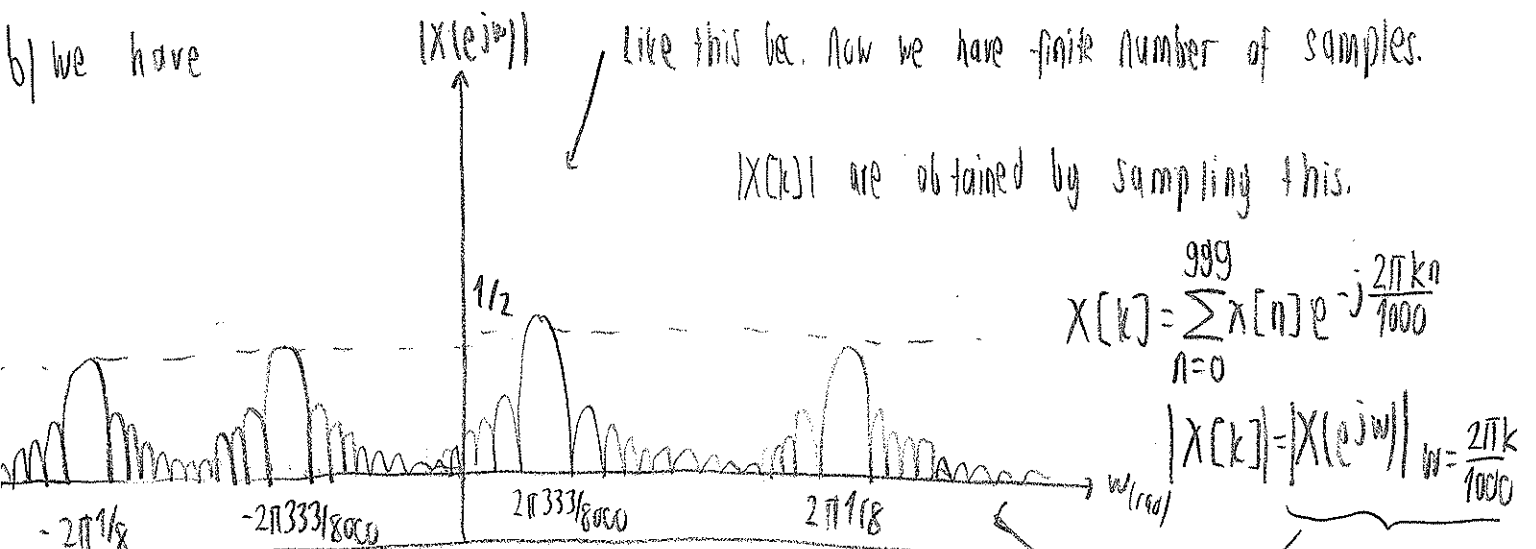 b) we have |X(e^{jw})| Like this bec. now we have finite number of samples.
|X[k]| are obtained by sampling this.
1/2
X[k] = \sum_{n=0}^{999} x[n] e^{-j\frac{2πkn}{1000}}
|X[k]| = |X(e^{jw})|_{w=\frac{2πk}{1000}}
w(rad)
-2π1/8 -2π333/8000 2π333/8000 2π1/8